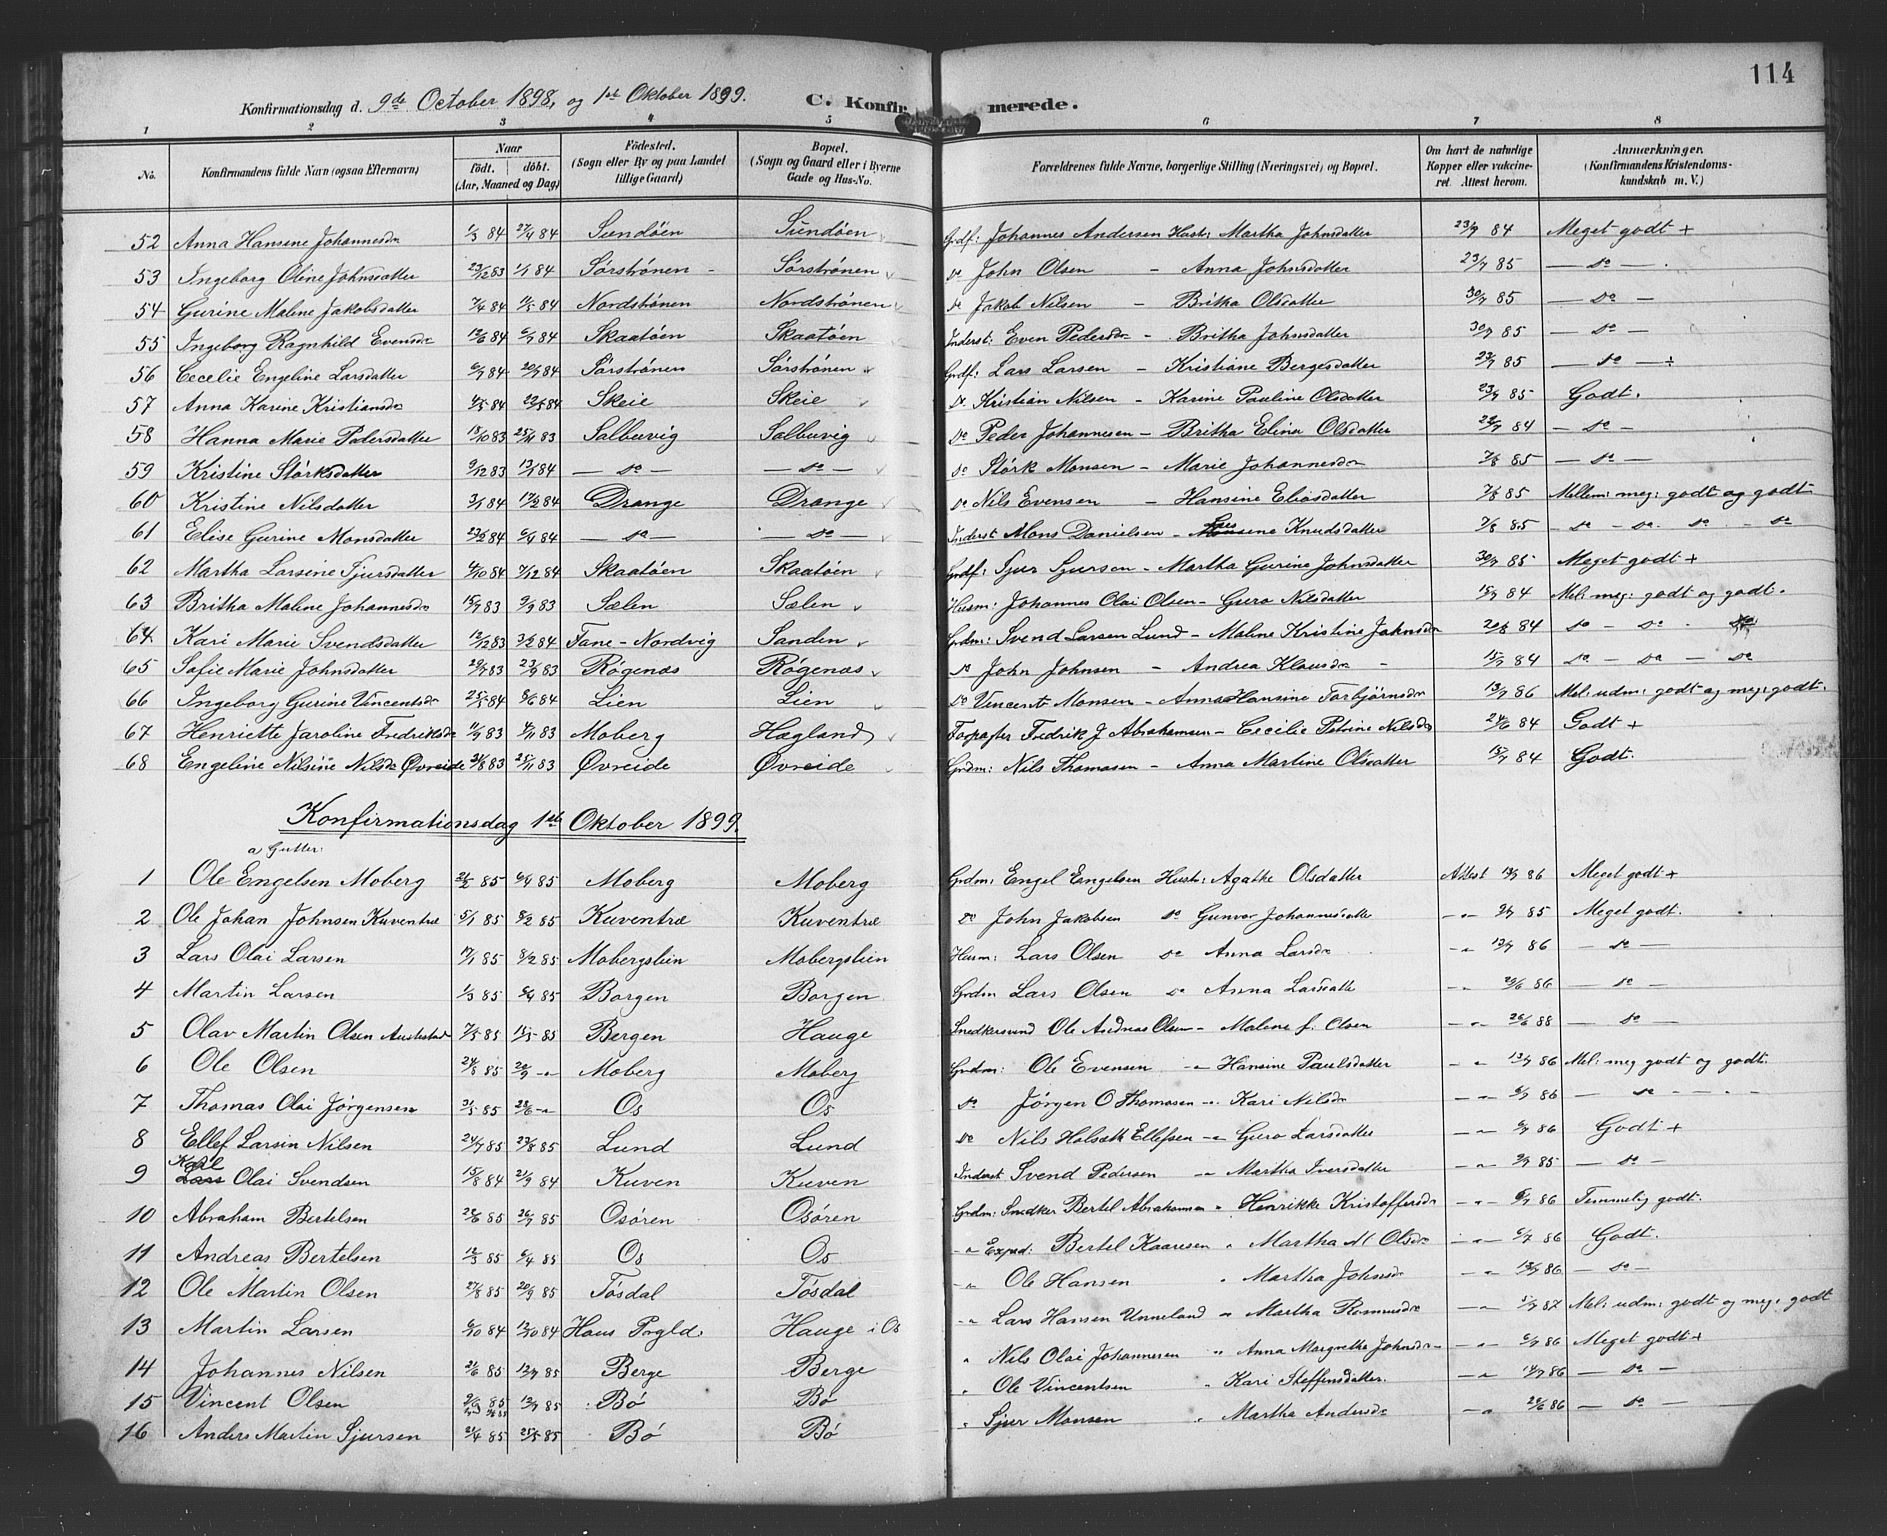 114
Konfirmationsdag d. 9de October 1898, og 1st Oktober 1899. C. Konfirmerede.
1 2 3 4 5 6 7 8
No. Konfirmandens fulde Navn (ogsaa Efternavn) Naar født. døbt. (Aar, Maaned og Dag) Fødested. (Sogn eller By og paa Landet tillige Gaard) Bopæl. (Sogn og Gaard eller i Byerne Gade og Hus-No. Forældrenes fulde Navne, borgerlige Stilling (Næringsvei) og Bopæl. Om havt de naturlige Kopper eller vaccineret. Attest herom. Anmærkninger. (Konfirmandens Kristendomskundskab m. V.)
52 Anna Hansine Johannesdr 1/3 84 27/4 84 Sundöen Sundöen Grdf: Johannes Andersen Hust: Martha Johnsdatter 23/9 84 Meget godt +
53 Ingeborg Oline Johnsdatter 23/12 83 1/1 84 Sörströnen Sörströnen do John Olsen - Anna Johnsdatter 23/7 85 - do -
54 Gurine Malene Jakobsdatter 7/4 84 Nordströnen Nordströnen do Jakob Nilsen - Britha Olsdatter 30/7 85 - do -
55 Ingeborg Ragnhild Evensdr 12/6 84 6/7 84 Skaatöen Skaatöen Inderst: Even Pedersen - Britha Johnsdatter 30/7 85 - do -
56 Cecelie Engeline Larsdatter 6/7 84 20/7 84 Sörströnen Sörströnen Grdf: Lars Larsen - Kristiane Bergesdatter 23/7 85 - do - +
57 Anna Karine Kristiansdr 4/5 84 22/5 84 Skeie Skeie do Kristian Nilsen - Karine Pauline Olsdatter 23/7 85 Godt.
58 Hanna Marie Pedersdatter 13/10 83 25/11 83 Salbuvig Salbuvig do Peder Johannesen - Britha Elina Olsdatter 84 - do -
59 Kristine Störksdatter 9/12 83 13/1 84 - do - - do - do Störk Monsen - Marie Johannesdr 7/8 85 - do -
60 Kristine Nilsdatter 3/1 84 17/2 84 Drange Drange do Nils Evensen - Hansine Eliasdatter 7/8 85 Mellem: meg: godt og godt
61 Elise Gurine Monsdatter 23/2 84 6/4 84 - do - - do - Inderst Mons Danielsen - Knudsdatter 7/8 85 - do - do - do do
62 Martha Larsine Sjursdatter 4/10 84 7/12 84 Skaatöen Skaatöen Grdf: Sjur Sjursen - Martha Gurine Johnsdatter 30/7 85 Meget godt +
63 Britha Malene Johannesdr 15/7 83 9/9 83 Sælen Sælen Husm: Johannes Olai Olsen - Guro Nilsdatter 15/7 84 Mel: meg: godt og godt.
64 Kari Marie Svendsdatter 12/12 83 3/2 84 Fane - Nordvig Sanden Grdm: Svend Larsen Lund - Malene Kristine Johnsdr 20/8 84 do - do - do
65 Sofie Marie Johnsdatter 29/7 83 23/9 83 Rögenæs Rögenæs do John Johnsen - Andrea Klausdr - 15/7 84 do - do - do
66 Ingeborg Gurine Vincentsdr 25/5 84 8/6 84 Lien Lien do Vincent Monsen - Anna Hansine Torbjörnsdr 13/7 86 Mel: udm: godt og meg: godt.
67 Henriette Jaroline Fredriksdr 11/9 83 4/11 83 Moberg Hægland Forpagter Fredrik J Abrahamsen - Cecilie Petrine Nilsdr 24/6 84 Godt +
68 Engeline Nilsine Nilsdr Øvreide 31/8 83 25/11 83 Øvreide Øvreide Grdm: Nils Thomasen - Anna Martine Olsdatter 15/7 84 Godt.
Konfirmationsdag 1st Oktober 1899.
a Gutter:
1 Ole Engelsen Moberg 21/2 85 6/4 85 Moberg Moberg Grdm: Engel Engelsen Hust: Agathe Olsdatter Attest 13/7 86 Meget godt +
2 Ole Johan Johnsen Kuventræ 5/1 85 8/2 85 Kuventræ Kuventræ do John Jakobsen do Gunvor Johannesdatter - " 85 Meget godt.
3 Lars Olai Larsen 17/1 85 8/2 85 Mobergslien Mobergslien Husm: Lars Olsen do Anna Larsdr - " 13/7 86 - do -
4 Martin Larsen 1/3 85 6/4 85 Borgen Borgen Grdm Lars Olsen do Anna Larsdatter - " 86 - do -
5 Olav Martin Olsen Austestad 7/5 85 15/5 85 Bergen Hauge Snedkersvend Ole Andreas Olsen - Malene f. Olsen - " 26/6 88 - do -
6 Ole Olsen 24/8 85 20/9 - " Moberg Moberg Grdm: Ole Evensen - " Hansine Paulsdatter - " 13/7 86 Mel: meg godt og godt.
7 Thomas Olai Jörgensen 31/5 85 28/6 - " Os Os do Jörgen O Thomasen - " Kari Nilsdr - " 6/7 86 - do - " -
8 Ellef Larsin Nilsen 24/7 85 23/8 85 Lund Lund do Nils Holsæth Ellefsen - " Guro Larsdatter - " 6/7 86 Godt +
9 Karl Olai Svendsen 15/8 84 21/9 84 Kuven Kuven Inderst Svend Pedersen " Martha Iversdatter - " - 85 - do -
10 Abraham Bertelsen 22/6 85 26/7 85 Osören Osören Grdm: Snedker Bertel Abrahamsen " Henrikke Kristoffersdr - " - 6/7 86 Temmelig godt.
11 Andreas Bertelsen 12/3 85 6/4 85 Os Os - " Exped: Bertel Kaaresen " Martha M Olsdr - " - 6/7 86 Godt.
12 Ole Martin Olsen 27/8 85 20/9 85 Tösdal Tösdal - " Ole Hansen " Martha Johnsdr - " - 13/7 86 - do -
13 Martin Larsen 6/10 84 12/10 84 Haus Prgld. Hauge i Os - " Lars Hansen Unneland " Martha Rasmusdr - " - 5/7 87 Mel: udm: godt og meg: godt
14 Johannes Nilsen 21/6 85 12/7 85 Berge Berge " Nils Olai Johannesen " Anna Margrethe Johnsdr - " - 6/7 86 Meget godt +
15 Vincent Olsen 85 12/7 85 Bö Bö " Ole Vincentsen " Kari Steffensdatter. - " 86 - do -
16 Anders Martin Sjursen 21/4 85 25/5 85 Bö Bö " Sjur Monsen " Martha Andersdr - " 86 - do -